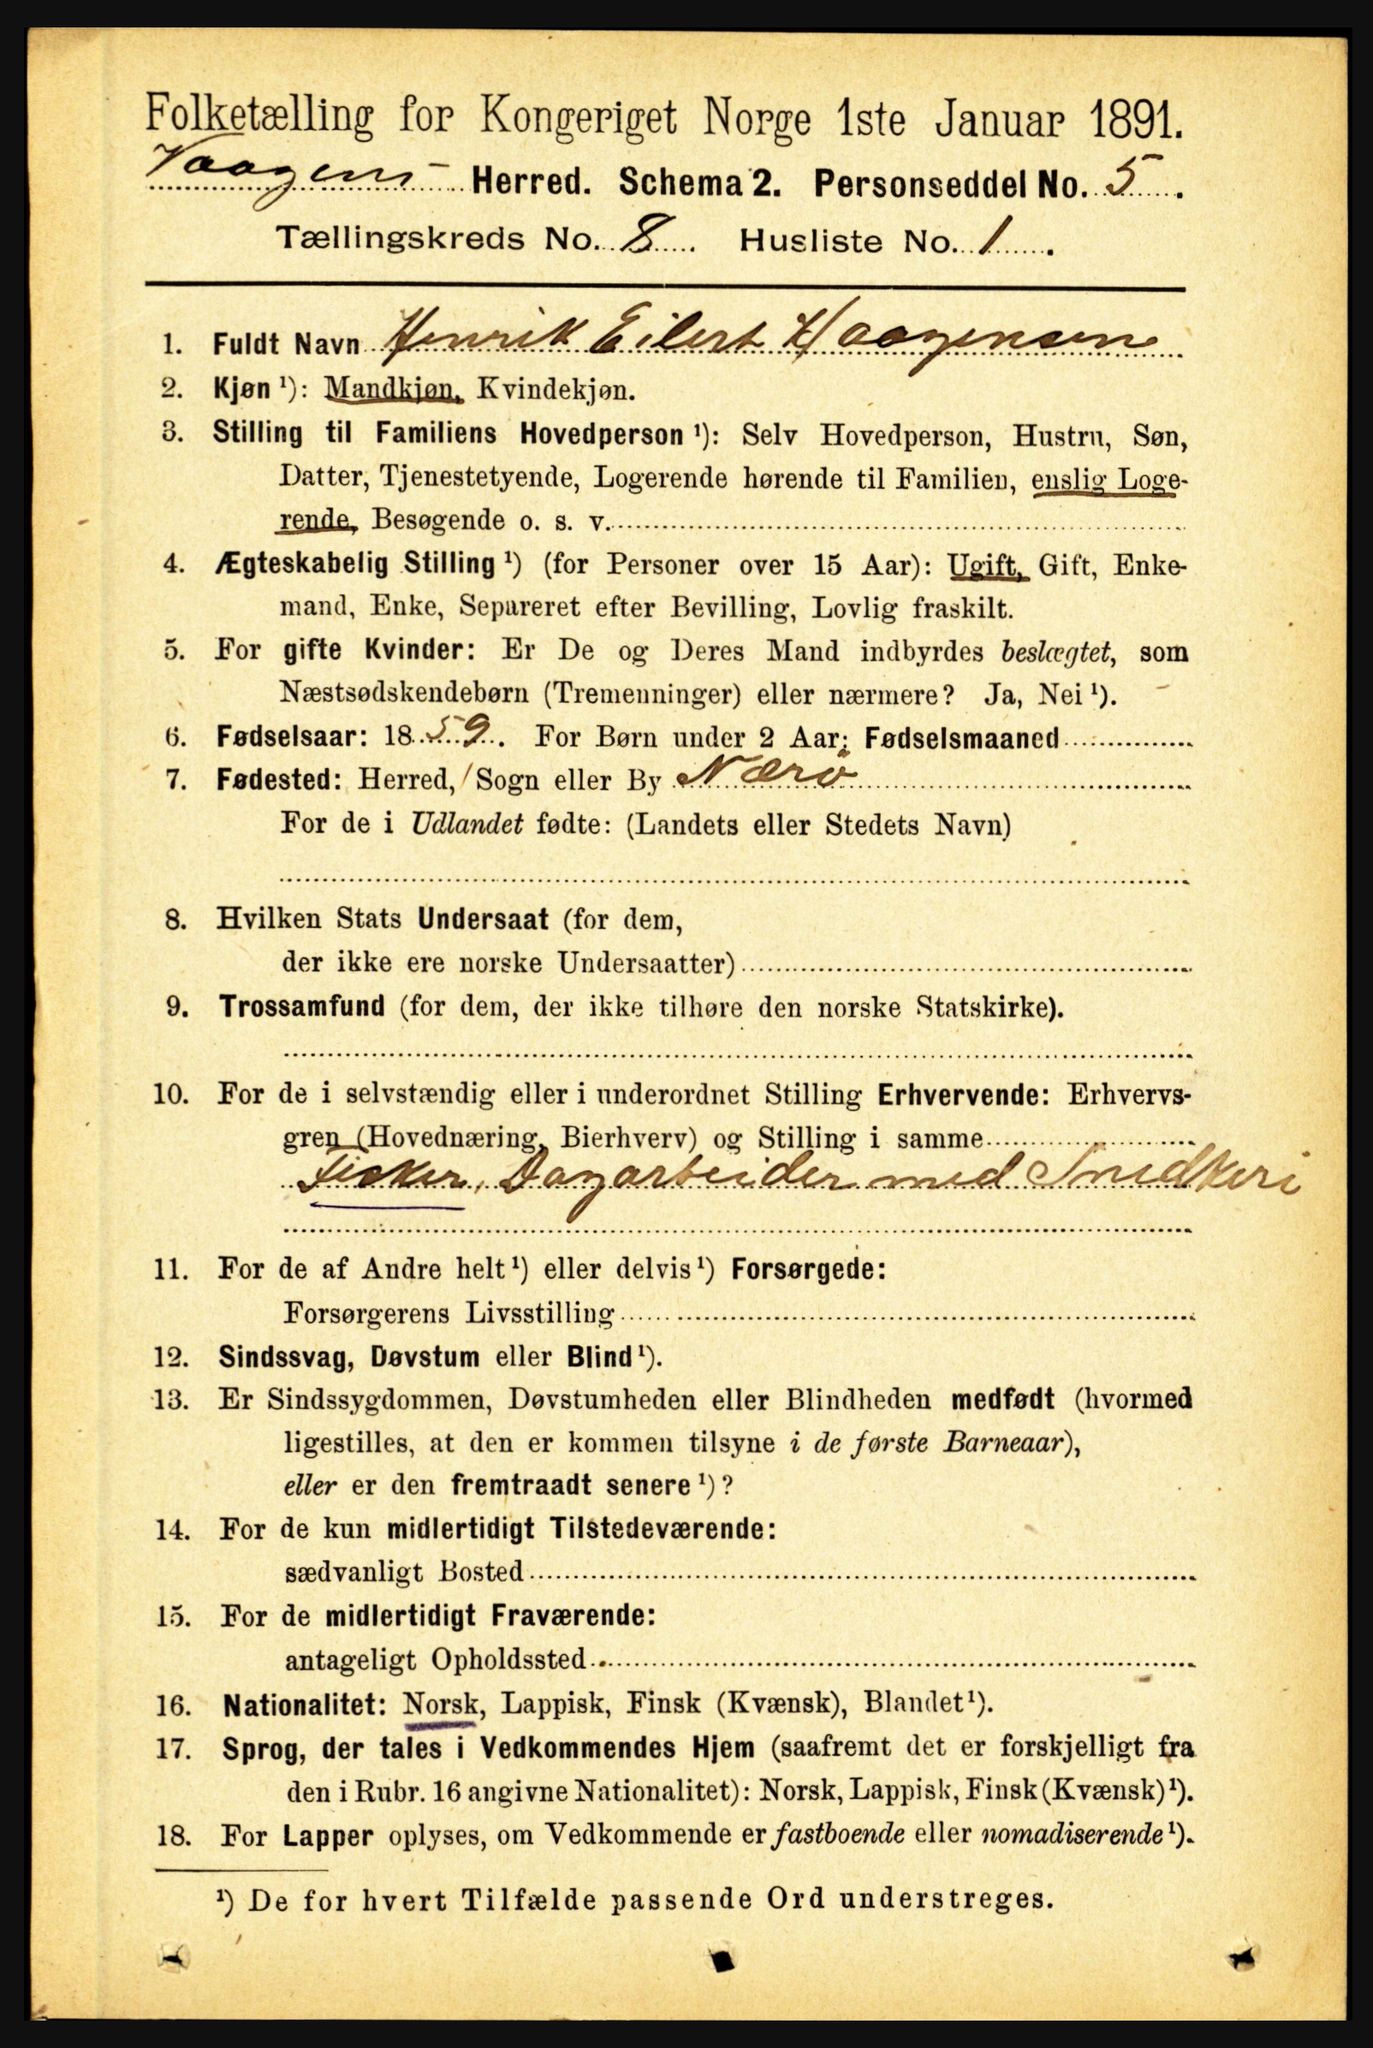 Folketælling for Kongeriget Norge 1ste Januar 1891.
Vaagens Herred. Schema 2. Personseddel No. 5.
Tællingskreds No. 8. Husliste No. 1.
1. Fuldt Navn Henrik Eilert Haagensen
2. Kjøn ¹): Mandkjøn, Kvindekjøn.
3. Stilling til Familiens Hovedperson ¹): Selv Hovedperson, Hustru, Søn,
Datter, Tjenestetyende, Logerende hørende til Familien, enslig Loge-
rende, Besøgende o. s. v.
4. Ægteskabelig Stilling ¹) (for Personer over 15 Aar): Ugift, Gift, Enke-
mand, Enke, Separeret efter Bevilling, Lovlig fraskilt.
5. For gifte Kvinder: Er De og Deres Mand indbyrdes beslægtet, som
Næstsødskendebørn (Tremenninger) eller nærmere? Ja, Nei ¹).
6. Fødselsaar: 1859. For Børn under 2 Aar: Fødselsmaaned
7. Fødested: Herred, Sogn eller By Nærø
For de i Udlandet fødte: (Landets eller Stedets Navn)
8. Hvilken Stats Undersaat (for dem,
der ikke ere norske Undersaatter)
9. Trossamfund (for dem, der ikke tilhøre den norske Statskirke).
10. For de i selvstændig eller i underordnet Stilling Erhvervende: Erhvervs-
gren (Hovednæring, Bierhverv) og Stilling i samme
Fisker, Dagarbeider med Snedkeri
11. For de af Andre helt ¹) eller delvis ¹) Forsørgede:
Forsørgerens Livsstilling
12. Sindssvag, Døvstum eller Blind ¹).
13. Er Sindssygdommen, Døvstumheden eller Blindheden medfødt (hvormed
ligestilles, at den er kommen tilsyne i de første Barneaar),
eller er den fremtraadt senere ¹)?
14. For de kun midlertidigt Tilstedeværende:
sædvanligt Bosted
15. For de midlertidigt Fraværende:
antageligt Opholdssted
16. Nationalitet: Norsk, Lappisk, Finsk (Kvænsk), Blandet ¹).
17. Sprog, der tales i Vedkommendes Hjem (saafremt det er forskjelligt fra
den i Rubr. 16 angivne Nationalitet): Norsk, Lappisk, Finsk (Kvænsk) ¹).
18. For Lapper oplyses, om Vedkommende er fastboende eller nomadiserende ¹).
¹) De for hvert Tilfælde passende Ord understreges.